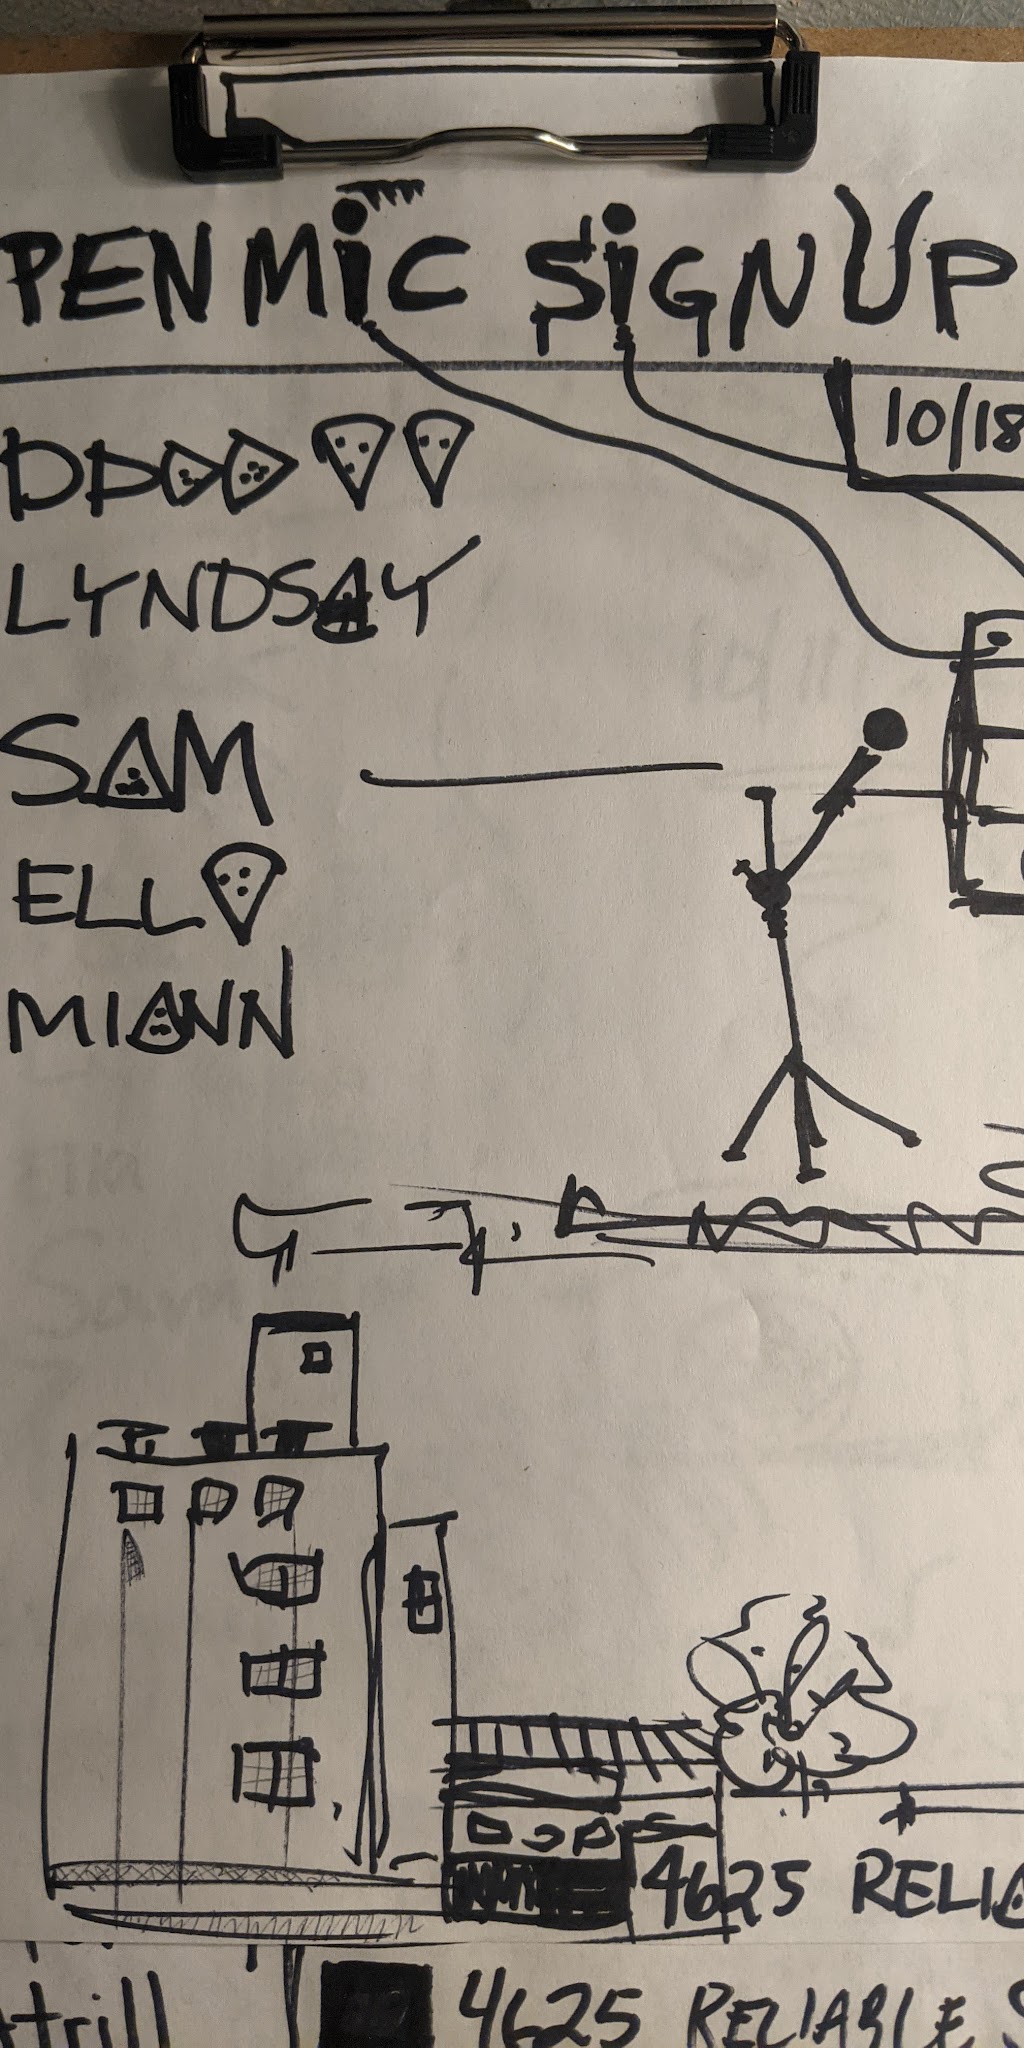 PEN MiC SiGN UP
10/18
LYNDSAY
SAM
ELL
MIANN
4625 RELIA
trill
4625 RELIABLE S